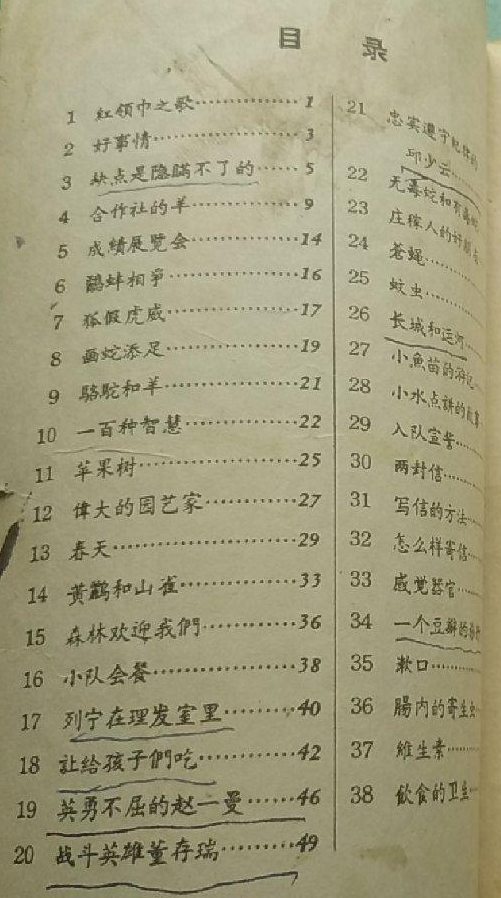 目 录
1 紅領巾之歌……………1
2 好事情……………3
3 缺点是隐瞞不了的……5
4 合作社的羊……………9
5 成績展覽会……………14
6 鷸蚌相爭……………16
7 狐假虎威……………17
8 画蛇添足……………19
9 駱駝和羊……………21
10 一百种智慧……………22
11 苹果树……………25
12 偉大的园艺家…………27
13 春天……………29
14 黄鸝和山雀……………33
15 森林欢迎我們…………36
16 小队会餐……………38
17 列宁在理发室里………40
18 让給孩子們吃…………42
19 英勇不屈的赵一曼……46
20 战斗英雄董存瑞………49
21 忠实遵守紀律的
邱少云……
22 无毒蛇和有毒蛇
23 庄稼人的好朋友
24 苍蝇……
25 蚊虫……
26 长城和运河……
27 小魚苗的游记
28 小水点講的故事
29 入队宣誓……
30 两封信……
31 写信的方法……
32 怎么样寄信……
33 感觉器官……
34 一个豆瓣的
35 漱口……
36 腸内的寄生虫
37 維生素……
38 飲食的卫生